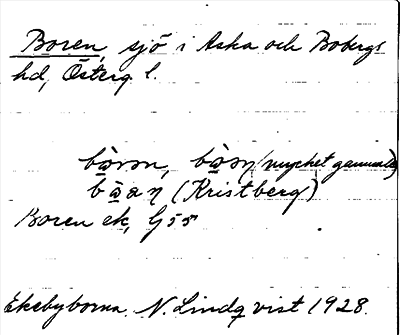 Boren, sjö i Aska och Bobergs
hd, Österg. l.
bɷ̀rən, bɷ̀əη (mycket gammalt)
bɷ̀aη (Kristberg)
Boren ek, G 55
Ekebyborna. N. Lindqvist 1928.